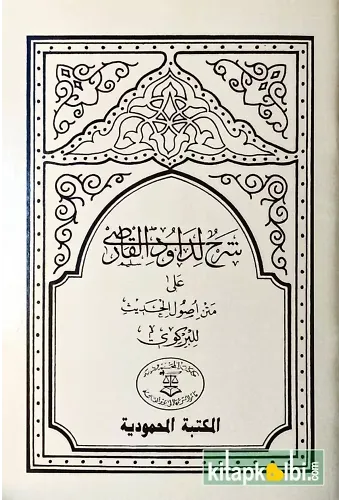 شرح لداود القارصي
على
متن أصول الحديث
للبركوي
المكتبة المحمودية
kitapkalbi.com